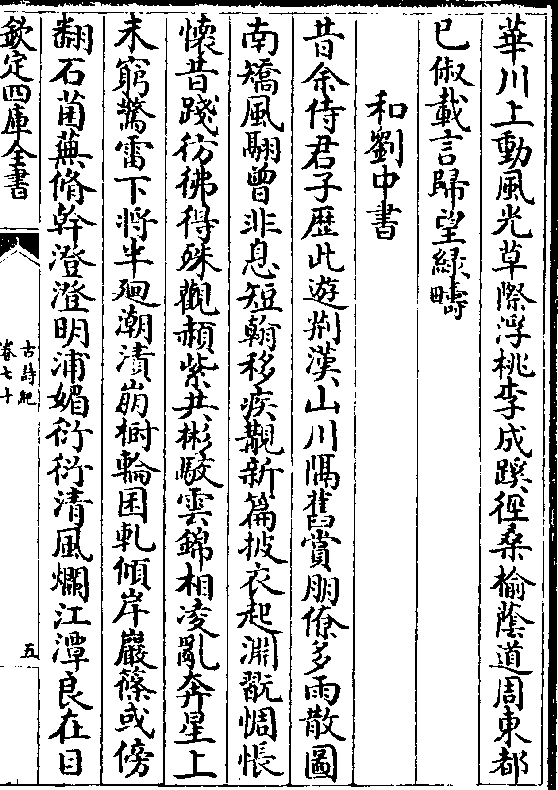 華川上動風光草際浮桃李成蹊徑桑榆蔭道周東都
已俶載言歸望綠疇
和劉中書
昔余侍君子歴此遊荆漢山川隔舊賞朋僚多雨散圖
南矯風翮曾非息短翰移疾覯新篇披衣起淵翫惆悵
懷昔踐彷彿得殊觀頳紫共彬駮雲錦相凌亂奔星上
未窮驚雷下将半廻潮漬崩樹輪囷軋傾岸巖篠或傍
翻石菌蕪脩幹澄澄明浦媚衍衍清風爛江潭良在目
欽定四庫全書
古詩紀
卷七十
五